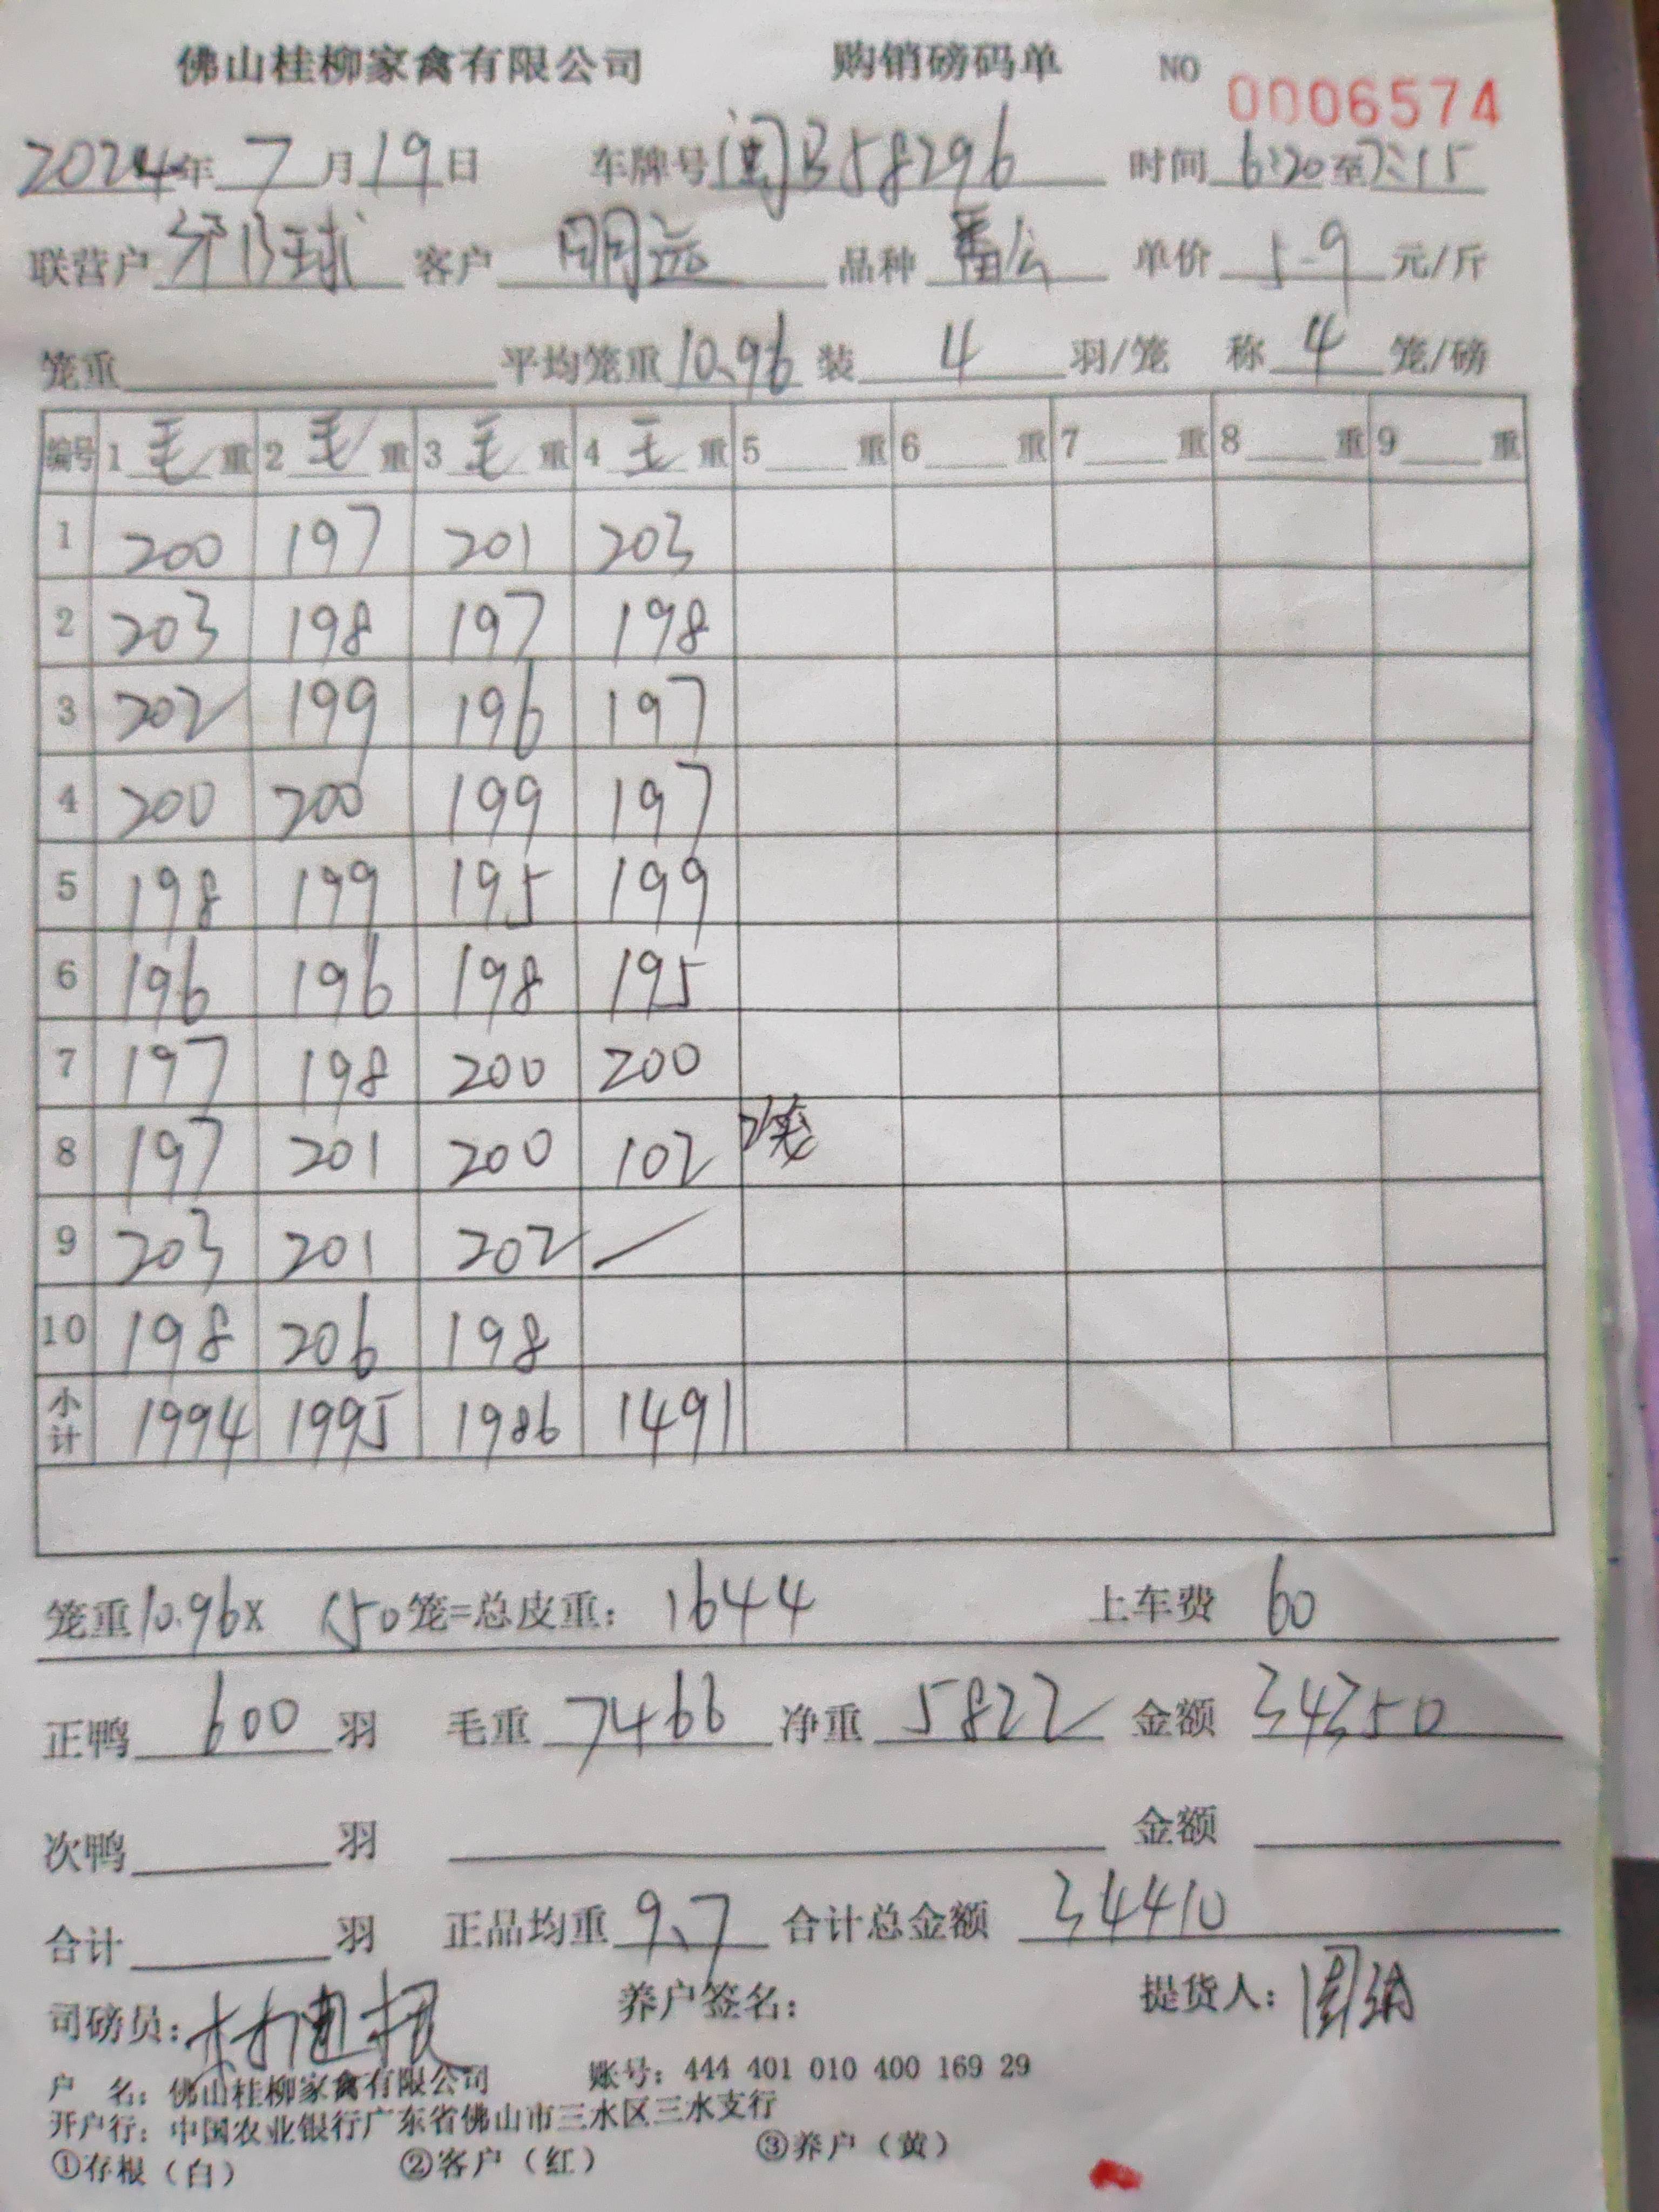 佛山桂柳家禽有限公司 购销磅码单 NO 0006574
2024年 7 月 19 日 车牌号 闽B58296 时间 6:20 至 7:15
联营户 球 客户 明远 品种 番公 单价 5.9 元/斤
笼重 平均笼重 10.96 装 4 羽/笼 称 4 笼/磅
编号 1 毛 重 2 毛 重 3 毛 重 4 毛 重 5 重 6 重 7 重 8 重 9 重
1 200 197 201 203
2 203 198 197 198
3 202 199 196 197
4 200 200 199 197
5 198 199 195 199
6 196 196 198 195
7 197 198 200 200
8 197 201 200 102 2笼
9 203 201 202 /
10 198 206 198
小计 1994 1995 1986 1491
笼重 10.96 x 150 笼=总皮重: 1644 上车费 60
正鸭 600 羽 毛重 7466 净重 5822 金额 34350
次鸭 羽 金额
合计 羽 正品均重 9.7 合计总金额 34410
司磅员: 养户签名: 提货人:
户 名: 佛山桂柳家禽有限公司 账号: 444 401 010 400 169 29
开户行: 中国农业银行广东省佛山市三水区三水支行
①存根(白) ②客户(红) ③养户(黄)